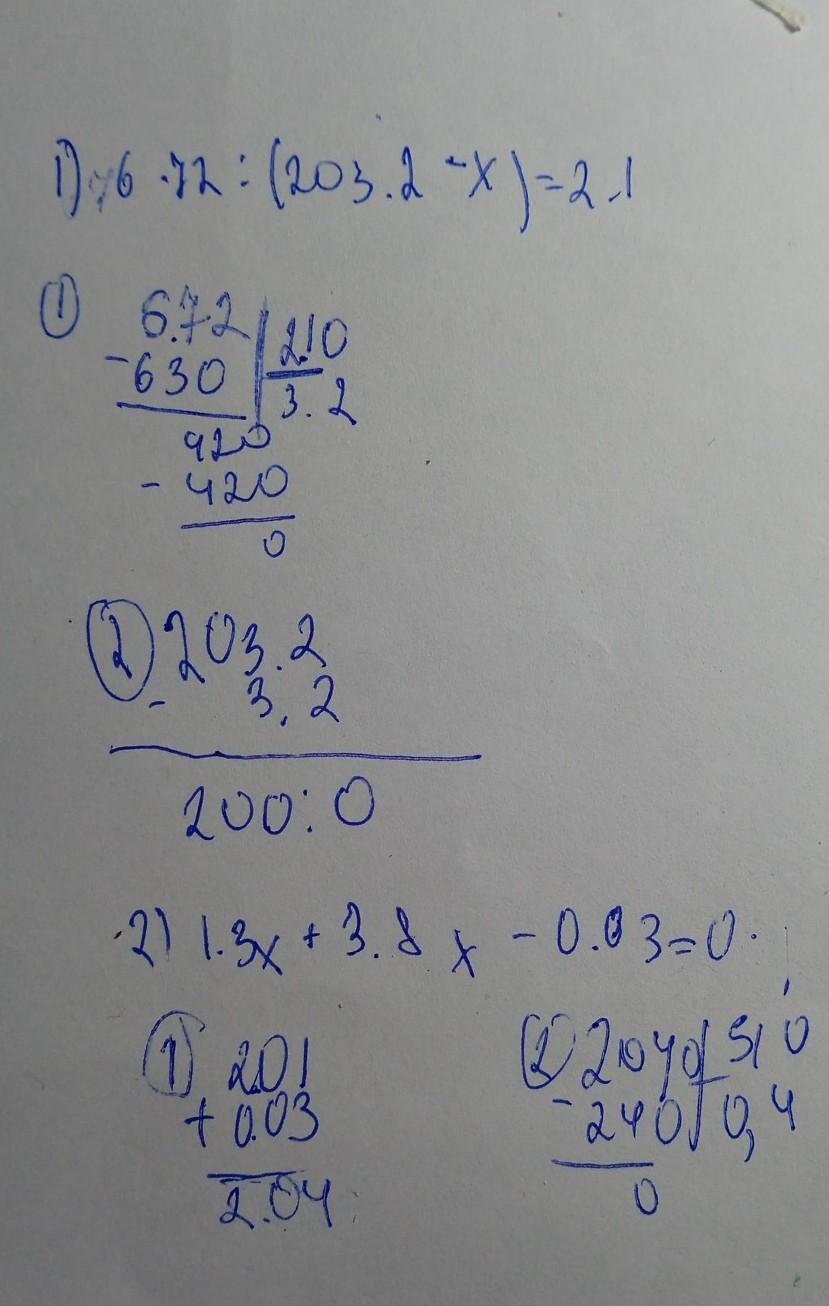 1) 6.72:(203.2-x)=2.1
① 6.72 | 2.10
-630 | 3.2
420
-420
0
② 203.2
- 3.2
200:0
2) 1.3x+3.8x-0.03=0.
① 2.01
+0.03
2.04
② 2040 | 510
-240 | 0,4
0